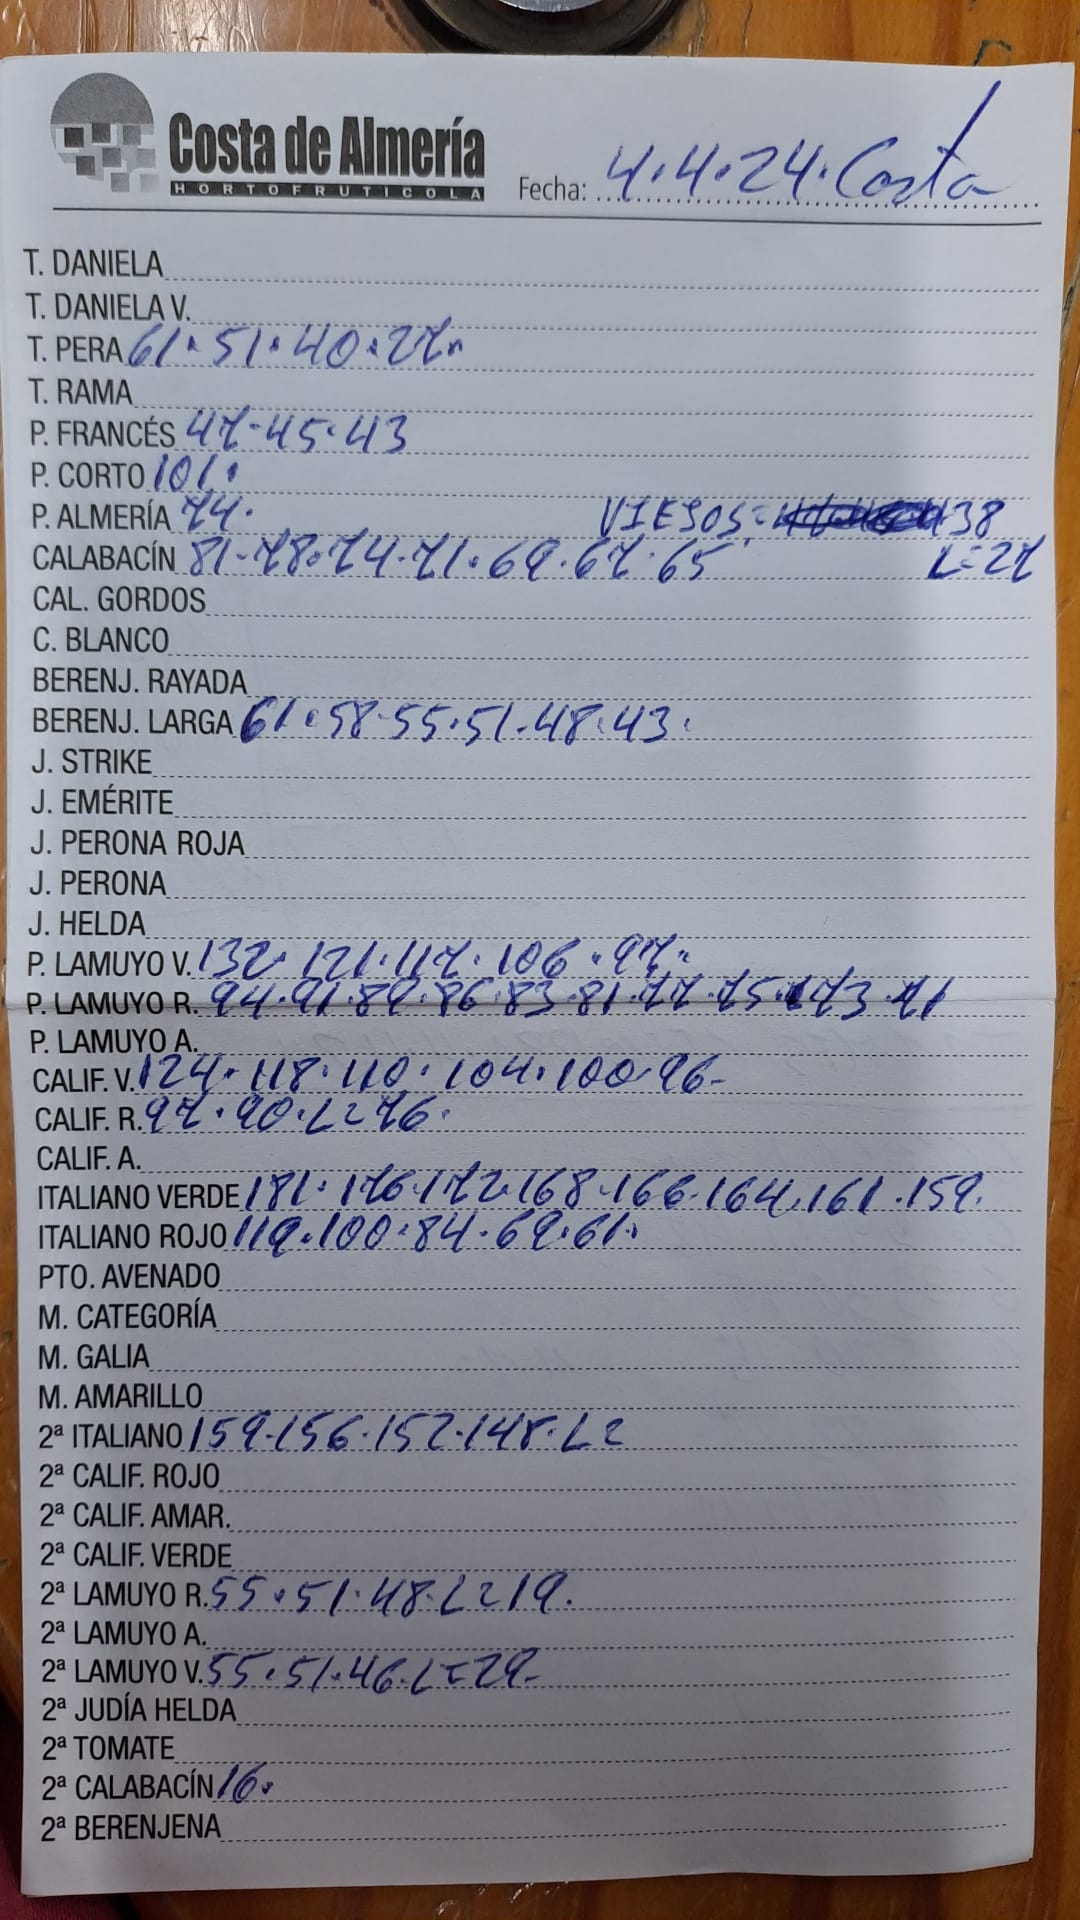 Costa de Almería
HORTOFRUTICOLA
Fecha: 4.4.24. Costa
T. DANIELA
T. DANIELA V.
T. PERA 61. 51. 40. 27.
T. RAMA
P. FRANCÉS 47. 45. 43
P. CORTO 101.
P. ALMERÍA 74. VIESOS= 38
CALABACÍN 81. 78. 74. 71. 69. 67. 65 L=27
CAL. GORDOS
C. BLANCO
BERENJ. RAYADA
BERENJ. LARGA 61. 58. 55. 51. 48. 43.
J. STRIKE
J. EMÉRITE
J. PERONA ROJA
J. PERONA
J. HELDA
P. LAMUYO V. 132. 121. 117. 106. 97.
P. LAMUYO R. 94. 91. 89. 86. 83. 81. 77. 75. 73. 71
P. LAMUYO A.
CALIF. V. 124. 118. 110. 104. 100. 96-
CALIF. R. 97. 90. L=76.
CALIF. A.
ITALIANO VERDE 181. 176. 172. 168. 166. 164. 161. 159.
ITALIANO ROJO 119. 100. 84. 69. 61.
PTO. AVENADO
M. CATEGORÍA
M. GALIA
M. AMARILLO
2ª ITALIANO 159. 156. 152. 148. L=
2ª CALIF. ROJO
2ª CALIF. AMAR.
2ª CALIF. VERDE
2ª LAMUYO R. 55. 51. 48. L=19.
2ª LAMUYO A.
2ª LAMUYO V. 55. 51. 46. L=29-
2ª JUDÍA HELDA
2ª TOMATE
2ª CALABACÍN 16.
2ª BERENJENA